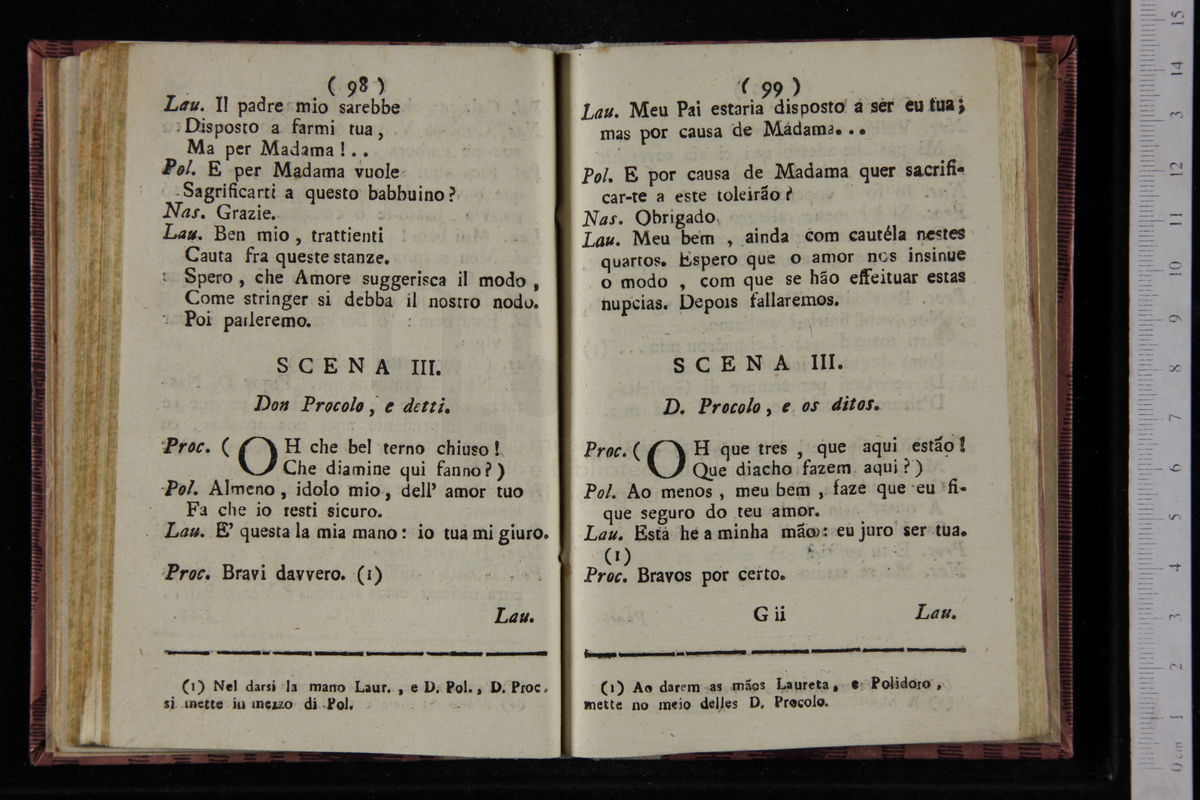 ( 98 )
Lau. Il padre mio sarebbe
Disposto a farmi tua,
Ma per Madama ! . .
Pol. E per Madama vuole
Sagrificarti a questo babbuino ?
Nas. Grazie.
Lau. Ben mio , trattienti
Cauta fra queste stanze.
Spero , che Amore suggerisca il modo ,
Come stringer si debba il nostro nodo.
Poi parleremo.
SCENA III.
Don Procolo, e detti.
Proc. ( OH che bel terno chiuso !
Che diamine qui fanno ? )
Pol. Almeno , idolo mio , dell' amor tuo
Fa che io resti sicuro.
Lau. E' questa la mia mano : io tua mi giuro.
Proc. Bravi davvero. (1)
Lau.
(1) Nel darsi la mano Laur. , e D. Pol. , D. Proc.
si mette in mezzo di Pol.
( 99 )
Lau. Meu Pai estaria disposto a ser eu tua ;
mas por causa de Madama. . .
Pol. E por causa de Madama quer sacrifi-
car-te a este toleirão ?
Nas. Obrigado
Lau. Meu bem , ainda com cautéla nestes
quartos. Espero que o amor nos insinue
o modo , com que se hão effeituar estas
nupcias. Depois fallaremos.
SCENA III.
D. Procolo, e os ditos.
Proc. ( OH que tres , que aqui estão !
Que diacho fazem aqui ? )
Pol. Ao menos , meu bem , faze que eu fi-
que seguro do teu amor.
Lau. Esta he a minha mão : eu juro ser tua.
(1)
Proc. Bravos por certo.
G ii Lau.
(1) Ao darem as mãos Laureta, e Polidoro ,
mette no meio delles D. Procolo.
0 cm 1 2 3 4 5 6 7 8 9 10 11 12 13 14 15